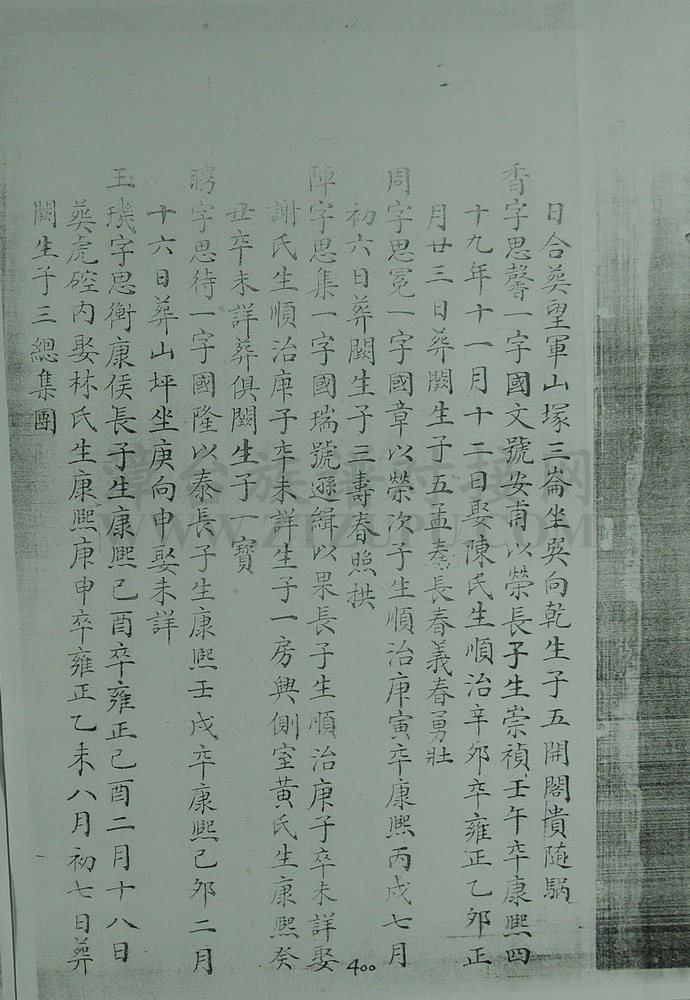 日合葬望軍山塚三崙坐巽向乾生子五開閣貴隨駟
香字思馨一字國文號安甫以榮長子生崇禎壬午卒康熙四
十九年十一月十二日娶陳氏生順治辛夘卒雍正乙夘正
月廿三日葬闕生子五孟春長春義春勇壯
周字思冕一字國章以榮次子生順治庚寅卒康熙丙戌七月
初六日葬闕生子三壽春照拱
陣字思集一字國瑞號遜緝以果長子生順治庚子卒未詳娶
謝氏生順治庚子卒未詳生子一房興側室黃氏生康熙癸
丑卒未詳葬俱闕生子一寶
聘字思待一字國隆以泰長子生康熙壬戌卒康熙己夘二月
十六日葬山坪坐庚向申娶未詳
玉璣字思衡康侯長子生康熙己酉卒雍正己酉二月十八日
葬虎硿内娶林氏生康熙庚申卒雍正乙未八月初七日葬
闕生子三總集團
400
WWW.ZTZUPU.COM